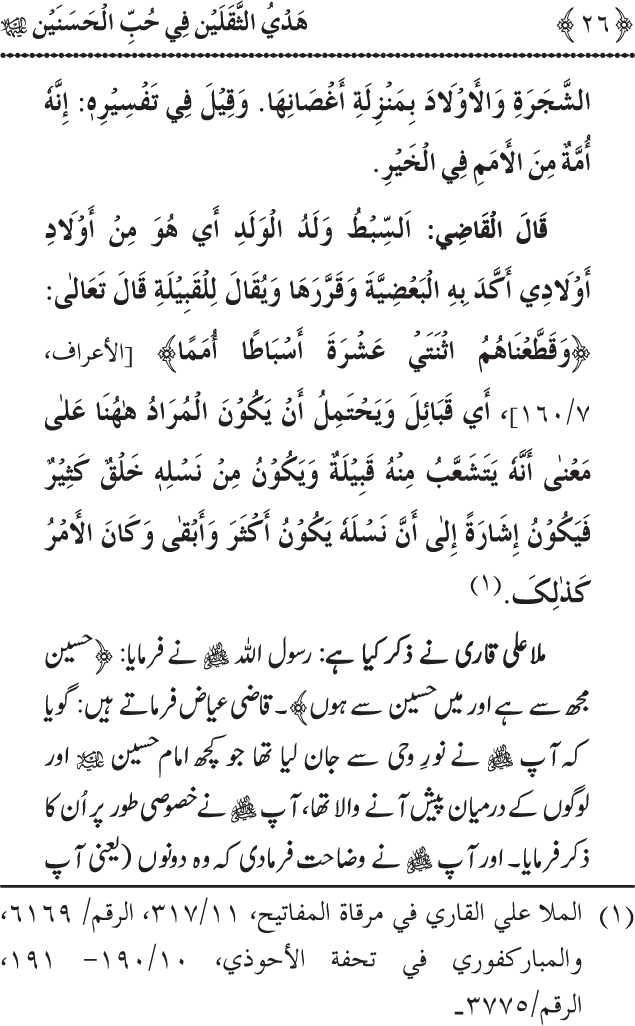 ﴿٢٦﴾ هَدْيُ الثَّقَلَيْن فِي حُبِّ الْحَسَنَيْن
الشَّجَرَةِ وَالْأَوْلَادَ بِمَنْزِلَةِ أَغْصَانِهَا. وَقِيْلَ فِي تَفْسِيْرِهِ: إِنَّهُ
أُمَّةٌ مِنَ الْأُمَمِ فِي الْخَيْرِ.
قَالَ الْقَاضِي: اَلسِّبْطُ وَلَدُ الْوَلَدِ أَي هُوَ مِنْ أَوْلَادِ
أَوْلَادِي أَكَّدَ بِهِ الْبَعْضِيَّةَ وَقَرَّرَهَا وَيُقَالَ لِلْقَبِيْلَةِ قَالَ تَعَالٰى:
﴿وَقَطَّعْنَاهُمُ اثْنَتَيْ عَشْرَةَ أَسْبَاطًا أُمَمًا﴾ [الأعراف،
١٦٠/٧]، أَي قَبَائِلَ وَيَحْتَمِلُ أَنْ يَكُوْنَ الْمُرَادُ هٰهُنَا عَلٰى
مَعْنٰى أَنَّهُ يَتَشَعَّبُ مِنْهُ قَبِيْلَةٌ وَيَكُوْنُ مِنْ نَسْلِهِ خَلْقٌ كَثِيْرٌ
فَيَكُوْنُ إِشَارَةً إِلٰى أَنَّ نَسْلَهُ يَكُوْنُ أَكْثَرَ وَأَبْقٰى وَكَانَ الْأَمْرُ
كَذٰلِكَ.(١)
ملا علی قاری نے ذکر کیا ہے: رسول اللہ ﷺ نے فرمایا: ﴿حسین
مجھ سے ہے اور میں حسین سے ہوں﴾۔ قاضی عیاض فرماتے ہیں: گویا
کہ آپ ﷺ نے نورِ وحی سے جان لیا تھا جو کچھ امام حسین علیہ السلام اور
لوگوں کے درمیان پیش آنے والا تھا، آپ ﷺ نے خصوصی طور پر اُن کا
ذکر فرمایا۔ اور آپ ﷺ نے وضاحت فرما دی کہ وہ دونوں (یعنی آپ
(١) الملا علي القاري في مرقاة المفاتيح، ٣١٧/١١، الرقم/ ٦١٦٩،
والمباركفوري في تحفة الأحوذي، ١٩٠/١٠- ١٩١،
الرقم/٣٧٧٥ـ